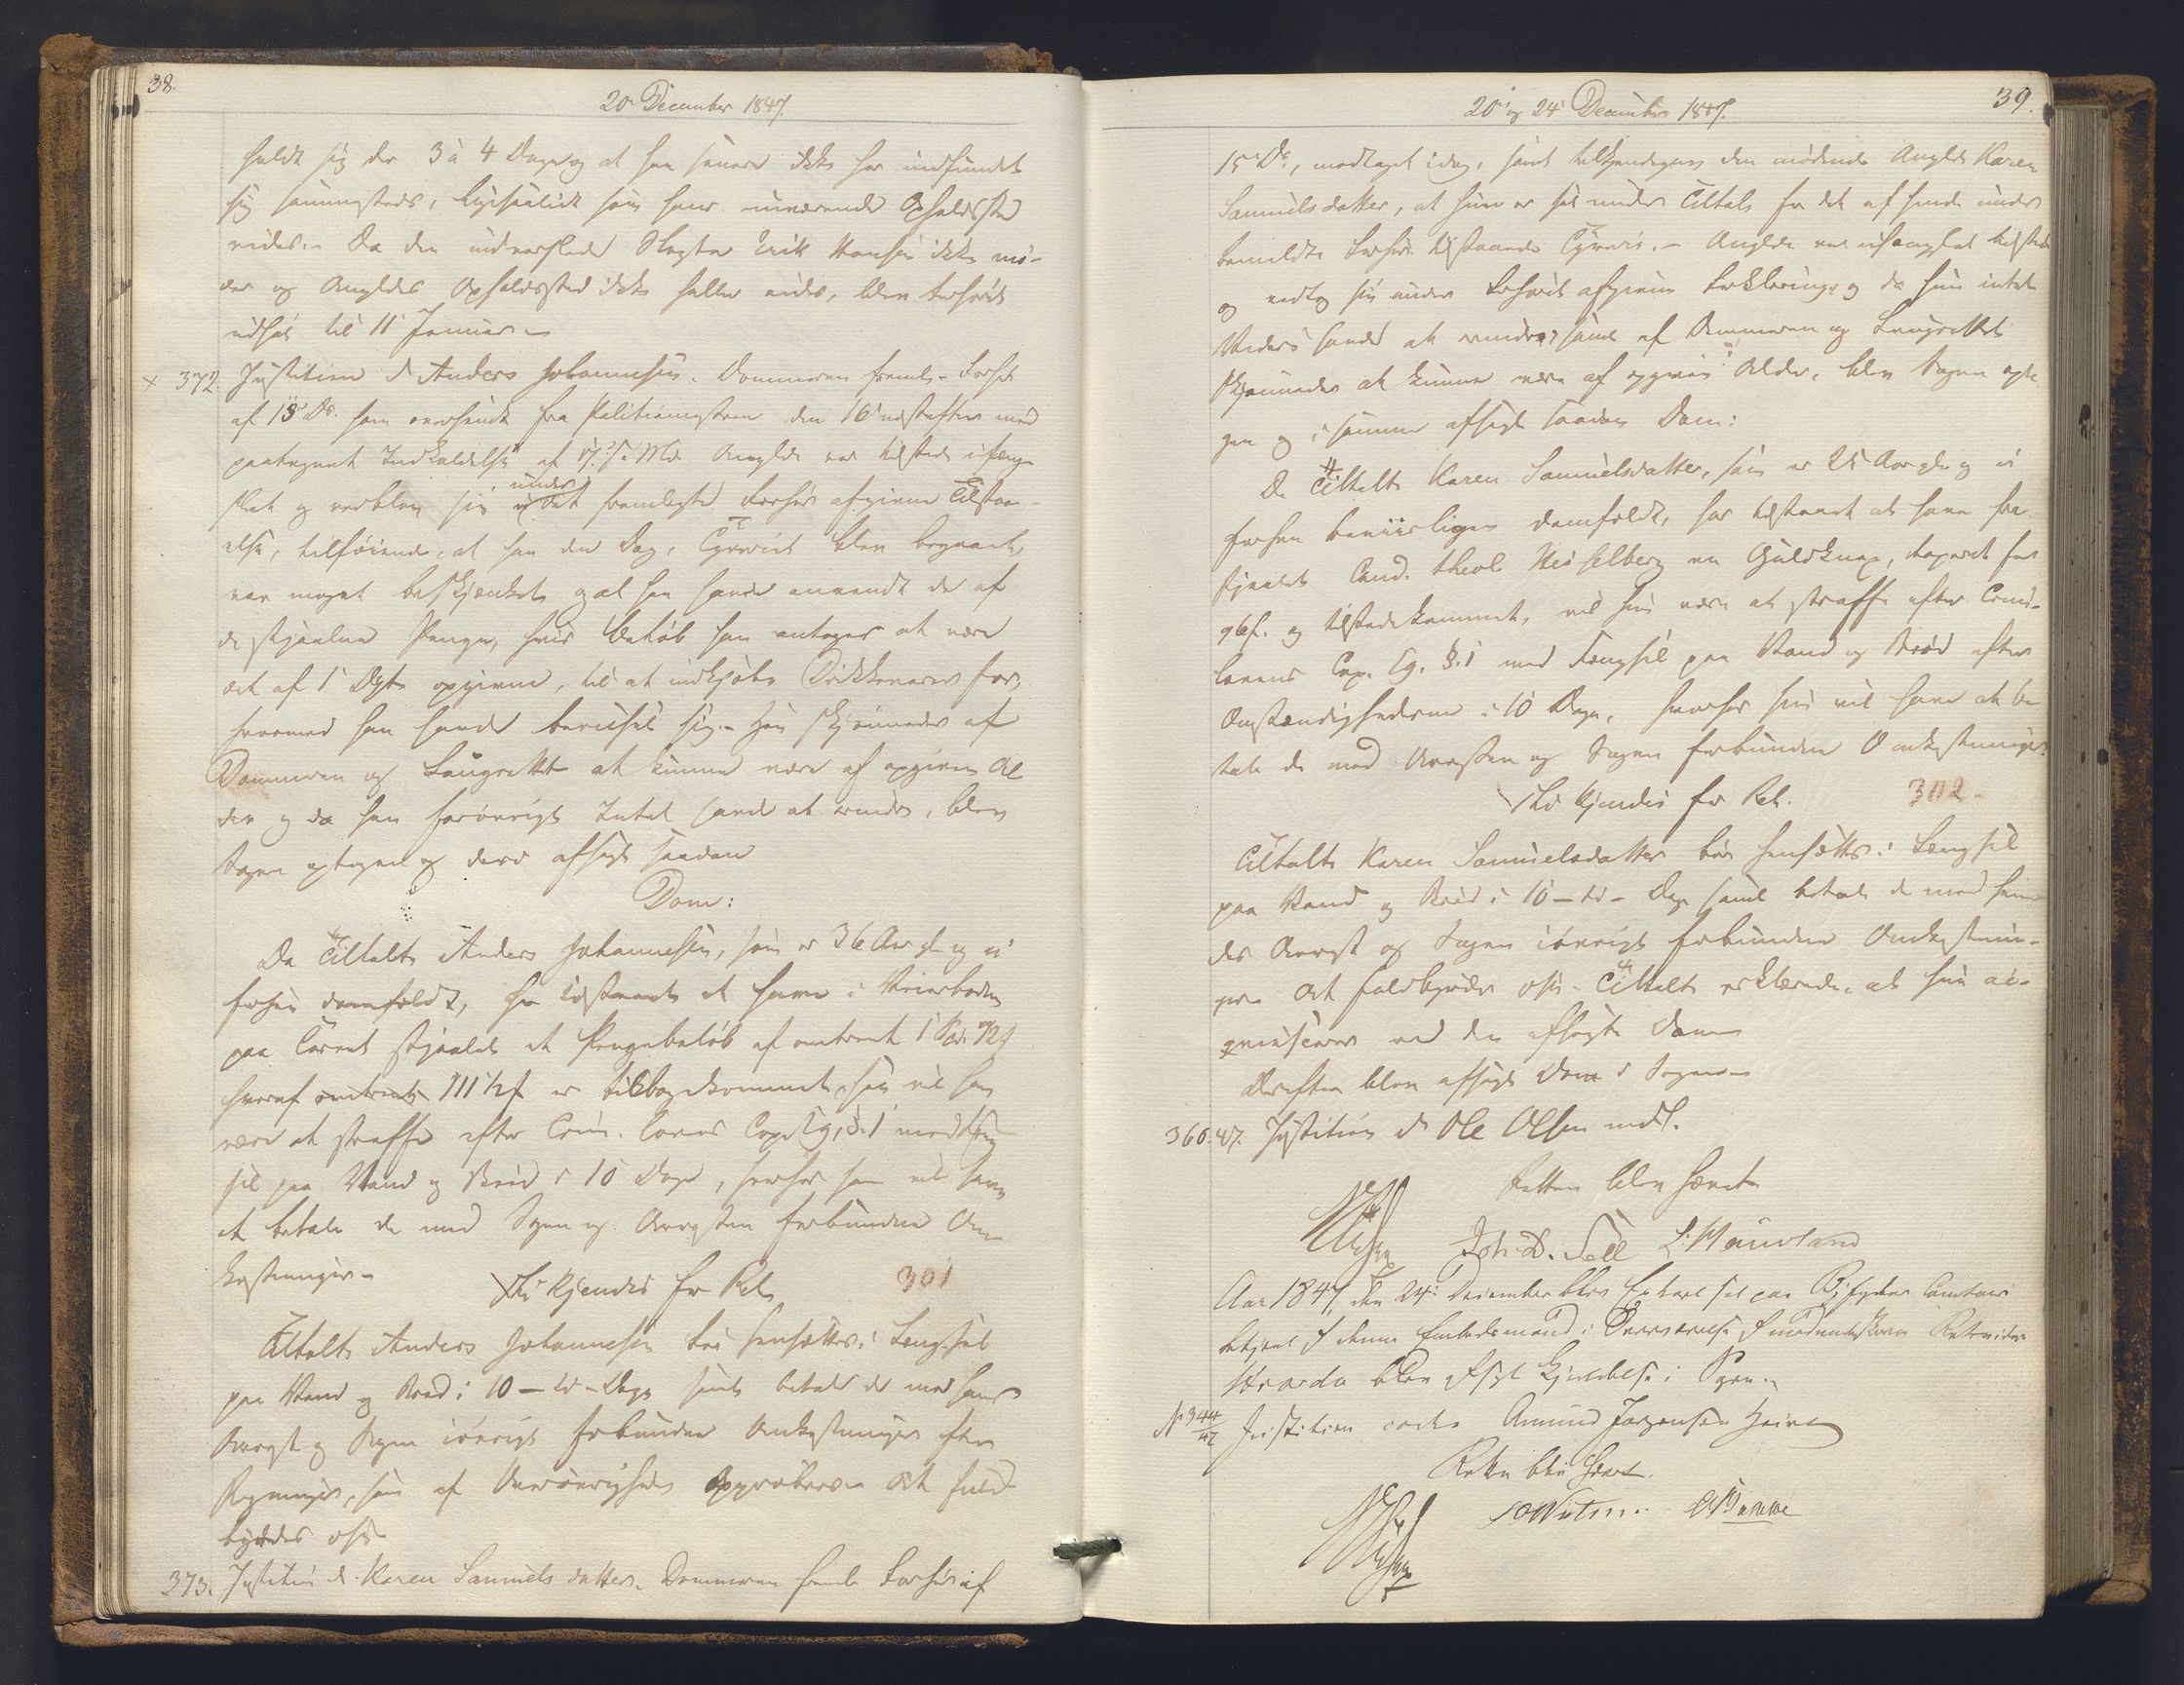 38.
20 December 1847.
holdt sig der 3 à 4 Dage og at han senere ikke har indfundet
sig sammesteds, ligesaalidt som hans nuværende Opholdssted
vides. Da den indvarslede Erik Hansen ikke mö-
der og Angjeldes Opholdssted ikke heller vides, blev Forhöret
udsat til 11 Januar.
x 372. Justitien ctr Anders Johannesen. Dommeren freml. Forhör
af 15 Ds. som oversendt fra Politiemesteren den 16 næstefter med
paategnet Indkaldelse af 17 s. Md. Angjeldte var tilstede ufeng-
slet og vedblev sin under det fremlagte Forhör afgivne Tilstaa-
else, tilföiende, at han den Dag, Tyveriet blev begaaet,
var meget beskjænket og at han havde anvendt de af
de stjaalne Penge, hvis Belöb han antager at være
det af Dpt. opgivne, til at indkjöbe Drikkevarer for,
hvormed han havde beruset sig. Han skjönnedes af
Dommeren og Laugrettet at kunne være af opgiven Al-
der og da han forövrigt Intet havde at erindre, blev
Sagen optagen og deri afsagt saadan
Dom:
Da Tiltalte Anders Johannesen, som er 36 Aar gl. og ei
forhen domfældt, har tilstaaet at have i Veierboden
paa Torvet stjaalet et Pengebelöb af omtrent 1 Spd. 72 s
hvoraf omtrent 111 1/2 s er tilbagekommet, saa vil han
være at straffe efter Crim. lovens Cap. 19, § 1 med Fæng-
sel paa Vand og Bröd i 10 Dage, hvorhos han vil have
at betale de med Sagen og Arresten forbundne Om-
kostninger.
Thi kjendes for Ret 301
Tiltalte Anders Johannesen bör hensættes i Fængsel
paa Vand og Bröd i 10 - ti - Dage samt betale de med hans
Arrest og Sagen iövrigt forbundne Omkostninger efter
Regninger, som af Överövrigheden approberes. At fuld-
byrdes osv.
373. Justitien ctr. Karen Samuelsdatter. Dommeren freml. Forhör af
39.
20 og 24 December 1847.
15 Ds., modtaget idag, samt tilkjendegav den mödende Angjeldte Karen
Samuelsdatter, at hun er sat under Tiltale for det af hende under
bemeldte Forhör tilstaaede Tyverie. Angjeldte var ufængslet tilstede
og vedtog sin under Forhöret afgivne Forklaring og da hun intet
Videre havde at erindre, samt af Dommeren og Laugrettet
skjönnedes at kunne være af opgiven Alder, blev Sagen opta-
gen og i samme afsagt saadan Dom:
Da Tiltalte Karen Samuelsdatter, som er 25 Aar gl. og ei
forhen beviisligen domfældt, har tilstaaet at have fra-
stjaalet Cand. theol. Heiselberg en Guldknap, taxeret for
96 s. og tilstedekommet, vil hun være at straffe efter Crim.
lovens Cap. 19, § 1 med Fængsel paa Vand og Bröd efter
Omstændighederne i 10 Dage, hvorhos hun vil have at be-
tale de med Arresten og Sagen forbundne Omkostninger.
Thi kjendes for Ret. 302.
Tiltalte Karen Samuelsdatter bör hensættes i Fængsel
paa Vand og Bröd i 10 - ti - Dage samt betale de med hen-
des Arrest og Sagen iövrigt forbundne Omkostnin-
ger. At fuldbyrdes osv. Tiltalte erklærede, at hun ac-
quiescerer ved den afsagte Dom.
Derefter blev afsagt Dom i Sagen
366.47. Justitien ctr Ole Olsen m.fl.
Retten blev hævet
Joh. D. Sell L. Mauvland
Aar 1847, den 24 December blev Extraret sat paa Byfogdens Contoir
betjent af denne Embedsmand i Overværelse af medunderskrevne Retsvidner
Hvorda blev afsagt Kjendelse i Sagen.
No 344/47 Justitien contra Amund Jörgensen Heire
Retten blev hævet.